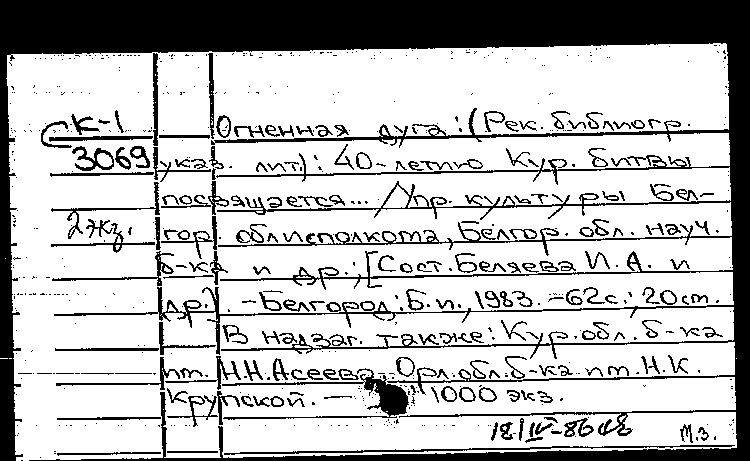 К-1
3069
2 экз.
Огненная дуга: (Рек. библиогр.
указ. лит): 40-летию Кур. битвы
посвящается... / Упр. культуры Бел-
гор. облисполкома, Белгор. обл. науч.
б-ка и др.; [Сост. Беляева И. А. и
др.]. - Белгород: Б.и., 1983. - 62с.; 20см.
В надзаг. также: Кур. обл. б-ка
им. Н.Н. Асеева, Орл. обл. б-ка им. Н.К.
Крупской. - 1000 экз.
18/IV-86
М.З.